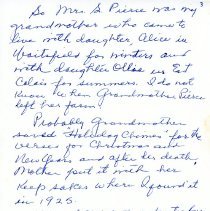 3
So Mrs S Pierce was my
grandmother who came to
live with daughter Alice in
Waitsfield for winters and
with daughter Ollie in Eat
Clair for summers. I do not
know when Grandmother Pierce
left her farm.
Probably Grandmother
saved "Holiday Chimes" for the
verses for Christmas and
New Years and after her death
Mother put it with her
keep sakes where I found it
in 1925